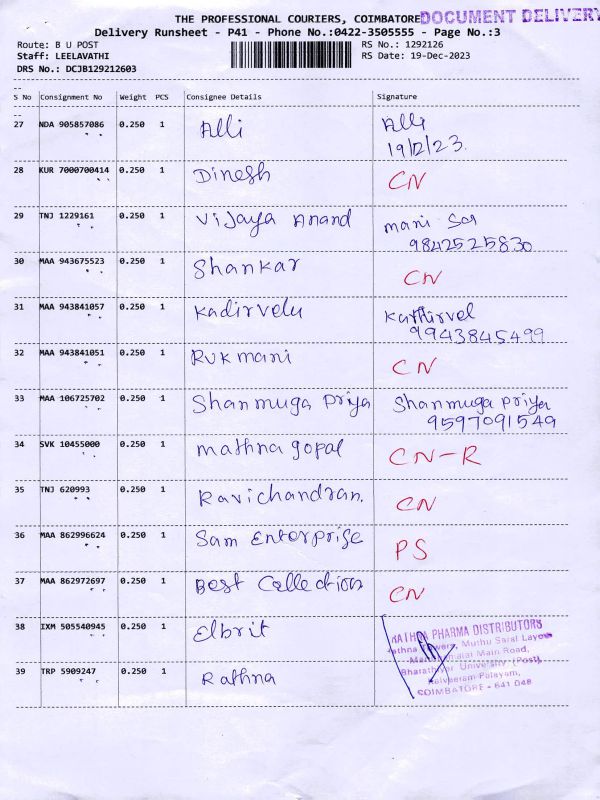 THE PROFESSIONAL COURIERS, COIMBATORE DOCUMENT DELIVERY
Delivery Runsheet - P41 - Phone No.:0422-3505555 - Page No.:3
Route: B U POST RS No.: 1292126
Staff: LEELAVATHI RS Date: 19-Dec-2023
DRS No.: DCJB129212603
S No Consignment No Weight PCS Consignee Details Signature
27 NDA 905857086 0.250 1 Alli Alli
19/12/23.
28 KUR 7000700414 0.250 1 Dinesh CN
29 TNJ 1229161 0.250 1 Vijaya Anand mani Sor
9842525830
30 MAA 943675523 0.250 1 Shankar CN
31 MAA 943841057 0.250 1 Kadirvelu Kathirvel
9943845499
32 MAA 943841051 0.250 1 Rukmani CN
33 MAA 106725702 0.250 1 Shanmuga Priya Shanmuga Priya
9597091549
34 SVK 10455000 0.250 1 mathna gopal CN-R
35 TNJ 620993 0.250 1 Ravichandran. CN
36 MAA 862996624 0.250 1 Sam Enterprise PS
37 MAA 862972697 0.250 1 Best Collection CN
38 IXM 505540945 0.250 1 Elbrit
39 TRP 5909247 0.250 1 Rathna
RATHNA PHARMA DISTRIBUTORS
Rathna Towers, Muthu Saral Layout
Main Road,
Bharathiyar University (Post),
Kalveeram Palayam,
COIMBATORE - 641 046